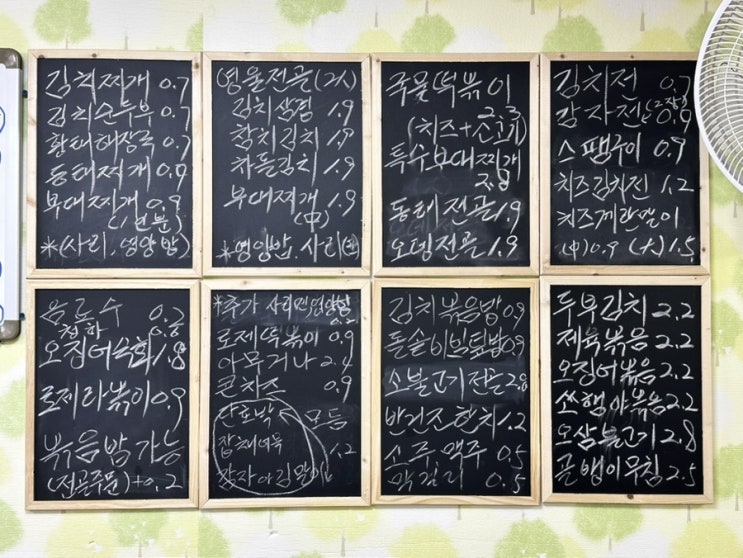 김치찌개 0.7
김치순두부 0.7
황태해장국 0.7
동태찌개 0.9
부대찌개 0.9
(1인분)
*(사리, 영양밥)
(2人)
김치삼겹 1.9
참치김치 1.9
차돌김치 1.9
부대찌개 1.9
(中)
*영양밥.사리
국물떡볶이
2.3
(치즈+소고기)
특수부대찌개
동태전골 1.9
오뎅전골 1.9
김치전 0.7
감자전 0.9
스팸구이 0.9
치즈김치전 1.2
치즈계란말이
(中)0.9 (大)1.5
음료수 0.2
청하 0.6
오징어숙회 1.8
로제라볶이 0.9
볶음밥가능
(전골주문)+0.2
*추가 사리
로제떡볶이 0.9
아무거나 2.4
콘치즈 0.9
단호박 모듬
1.2
김말이
김치볶음밥 0.9
돌솥비빔밥 0.9
소불고기전골 2.8
반건조한치 1.2
소주.맥주 0.5
막걸리 0.5
두부김치 2.2
제육볶음 2.2
오징어볶음 2.2
쏘행야볶음 2.2
오삼불고기 2.8
골뱅이무침 2.5